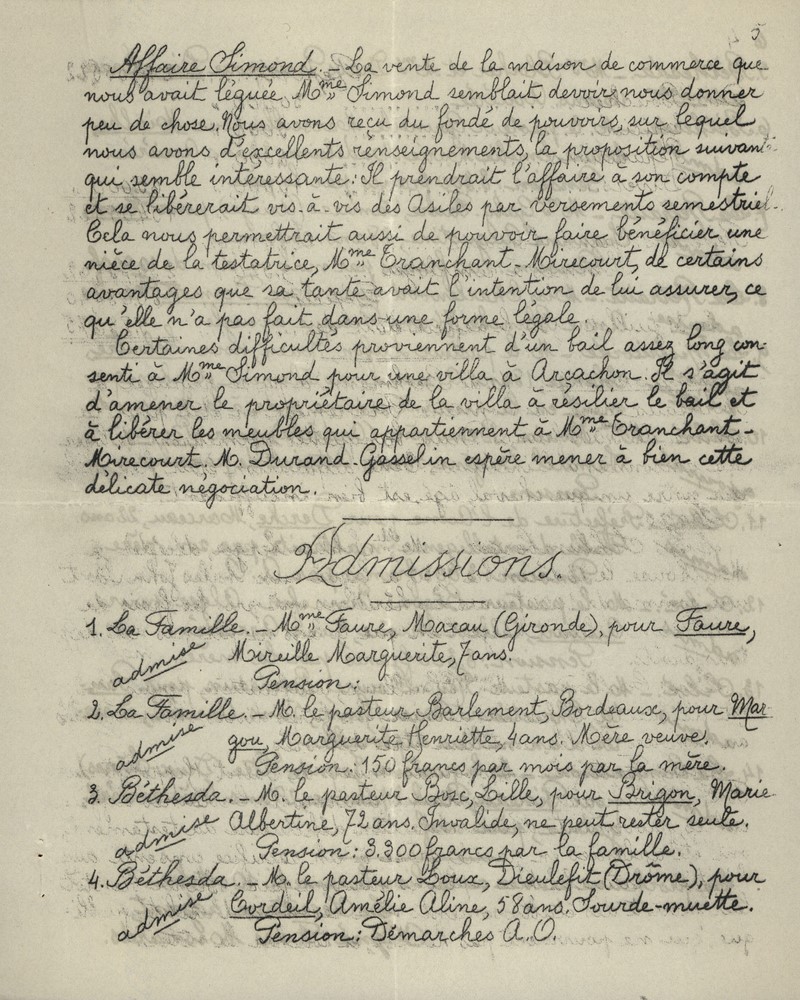 5
Affaire Simond. - La vente de la maison de commerce que
nous avait léguée Mme Simond semblait devoir nous donner
peu de chose. Nous avons reçu du fondé de pouvoirs, sur lequel
nous avons d'excellents renseignements, la proposition suivante
qui semble intéressante: Il prendrait l'affaire à son compte
et se libérerait vis-à-vis des Asiles par versements semestriels.
Cela nous permettrait aussi de pouvoir faire bénéficier une
nièce de la testatrice, Mme Tranchant-Mirecourt, de certains
avantages que sa tante avait l'intention de lui assurer, ce
qu'elle n'a pas fait dans une forme légale.
Certaines difficultés proviennent d'un bail assez long con-
senti à Mme Simond pour une villa à Arcachon. Il s'agit
d'amener le propriétaire de la villa à résilier le bail et
à libérer les meubles qui appartiennent à Mme Tranchant-
Mirecourt. M. Durand-Gasselin espère mener à bien cette
délicate négociation.
Admissions.
1. La Famille. - Mme Faure, Macau (Gironde), pour Faure,
admise Mireille Marguerite, 7 ans.
Pension:
2. La Famille. - M. le pasteur Barlement, Bordeaux, pour Mar
admise gou, Marguerite Henriette, 4 ans. Mère veuve.
Pension: 150 francs par mois par la mère.
3. Béthesda. - M. le pasteur Bosc, Lille, pour Brigon, Marie
admise Albertine, 72 ans. Invalide, ne peut rester seule.
Pension: 3.300 francs par la famille.
4. Béthesda. - M. le pasteur Loux, Dieulefit (Drôme), pour
admise Cordeil, Amélie Aline, 58 ans. Sourde-muette.
Pension: Démarches A.O.